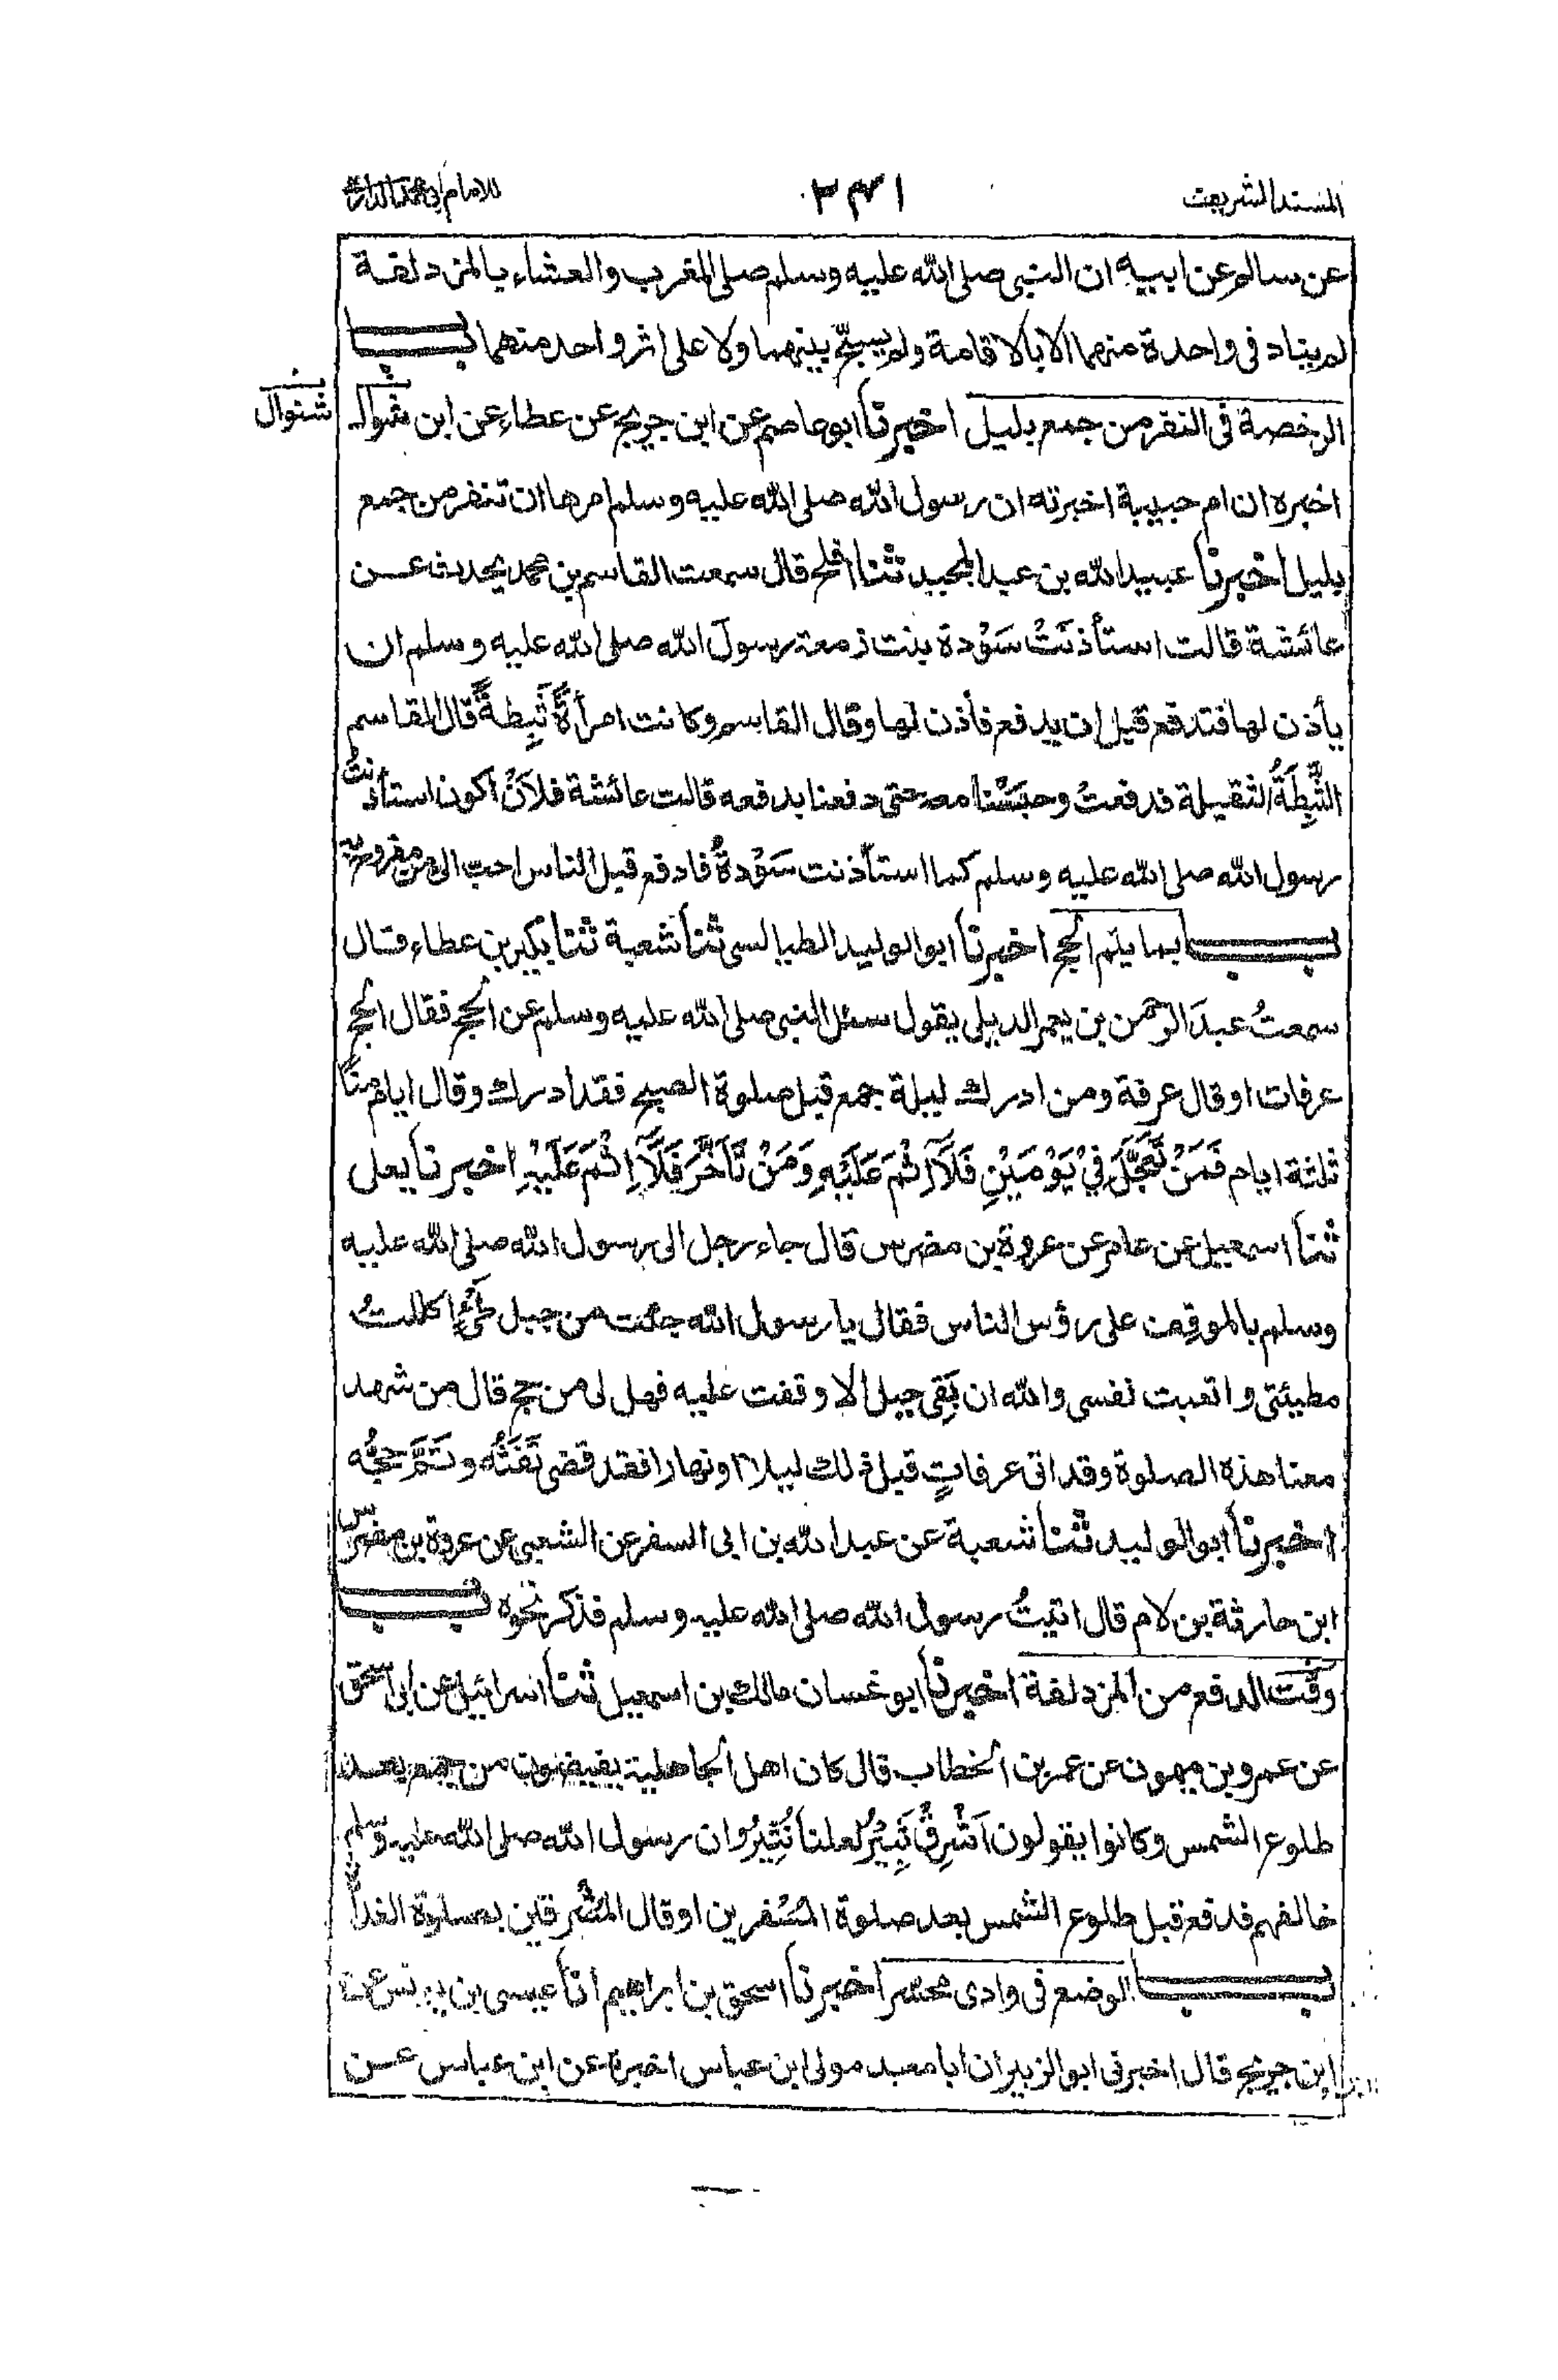 المسند الشريف
٢٤١
للامام ابي محمد الدارمي
عن سالم عن ابيه ان النبى صلى الله عليه وسلم صلى المغرب والعشاء بالمزدلفة
لم يناد فى واحدة منهما الا بالاقامة ولم يسبّح بينهما ولا على اثر واحد منهما باب
الرخصة فى النفر من جمع بليل اخبرنا ابوعاصم عن ابن جريج عن عطاء عن ابن شوال
شنوال
اخبره ان ام حبيبة اخبرته ان رسول الله صلى الله عليه وسلم امرها ان تنفر من جمع
بليل اخبرنا عبيد الله بن عبد المجيد ثنا افلح قال سمعت القاسم بن محمد يحدث عن
عائشة قالت استأذنَتْ سَوْدة بنت زمعة رسول الله صلى الله عليه وسلم ان
يأذن لها فتدفع قبل ان يدفع فأذن لها وقال القاسم وكانت امرأةً ثَبِطةً قال القاسم
الثَّبِطَةُ الثقيلة فدفعتْ وحبَسْنا معه حتى دفعنا بدفعه قالت عائشة فلَانْ اكون استأذنتُ
رسول الله صلى الله عليه وسلم كما استأذنت سَوْدةُ فادفع قبل الناس احبّ الى من مفروح به
باب بما يتم الحج اخبرنا ابوالوليد الطيالسى ثنا شعبة ثنا بكير بن عطاء قال
سمعتُ عبدَ الرحمن بن يعمر الديلى يقول سئل النبى صلى الله عليه وسلم عن الحج فقال الحج
عرفات اوقال عرفة ومن ادرك ليلة جمع قبل صلوة الصبح فقد ادرك وقال ايام منًا
ثلثة ايام فَمَنْ تَعَجَّلَ فِىْ يَوْمَيْنِ فَلَآ اِثْمَ عَلَيْهِ وَمَنْ تَاَخَّرَ فَلَآ اِثْمَ عَلَيْهِ اخبرنا يعلى
ثنا اسمعيل عن عامر عن عروة بن مضرس قال جاء رجل الى رسول الله صلى الله عليه
وسلم بالموقِف على رؤس الناس فقال يا رسول الله جئت من جبل طَئٍّ اكللتُ
مطيئتى واتعبت نفسى والله ان بَقِى جبل الا وقفت عليه فهل لى من حج قال من شهد
معنا هذه الصلوة وقد اتى عرفاتٍ قبل ذلك ليلا او نهارا فقد قضى تَفَثَه وتَمَّ حجُّه
اخبرنا ابوالوليد ثنا شعبة عن عبد الله بن ابى السفر عن الشعبى عن عروة بن مضرس
ابن حارثة بن لام قال اتيتُ رسول الله صلى الله عليه وسلم فذكر نحوه باب
وقت الدفع من المزدلفة اخبرنا ابو غسان مالك بن اسمعيل ثنا اسرائيل عن ابى اسحق
عن عمرو بن ميمون عن عمر بن الخطاب قال كان اهل الجاهلية يفيضون من جمع بعد
طلوع الشمس وكانوا يقولون اَشْرِقْ ثَبِيْرُ لعلنا نُثِيْرُ وان رسول الله صلى الله عليه وسلم
خالفهم فدفع قبل طلوع الشمس بعد صلوة المُسْفرين اوقال المُشْرقين بصلوة الغداة
باب الوضع فى وادى محسر اخبرنا اسحق بن ابراهيم انا عيسى بن يونس عن
ابن جريج قال اخبرنى ابو الزبير ان ابا معبد مولى ابن عباس اخبره عن ابن عباس عن